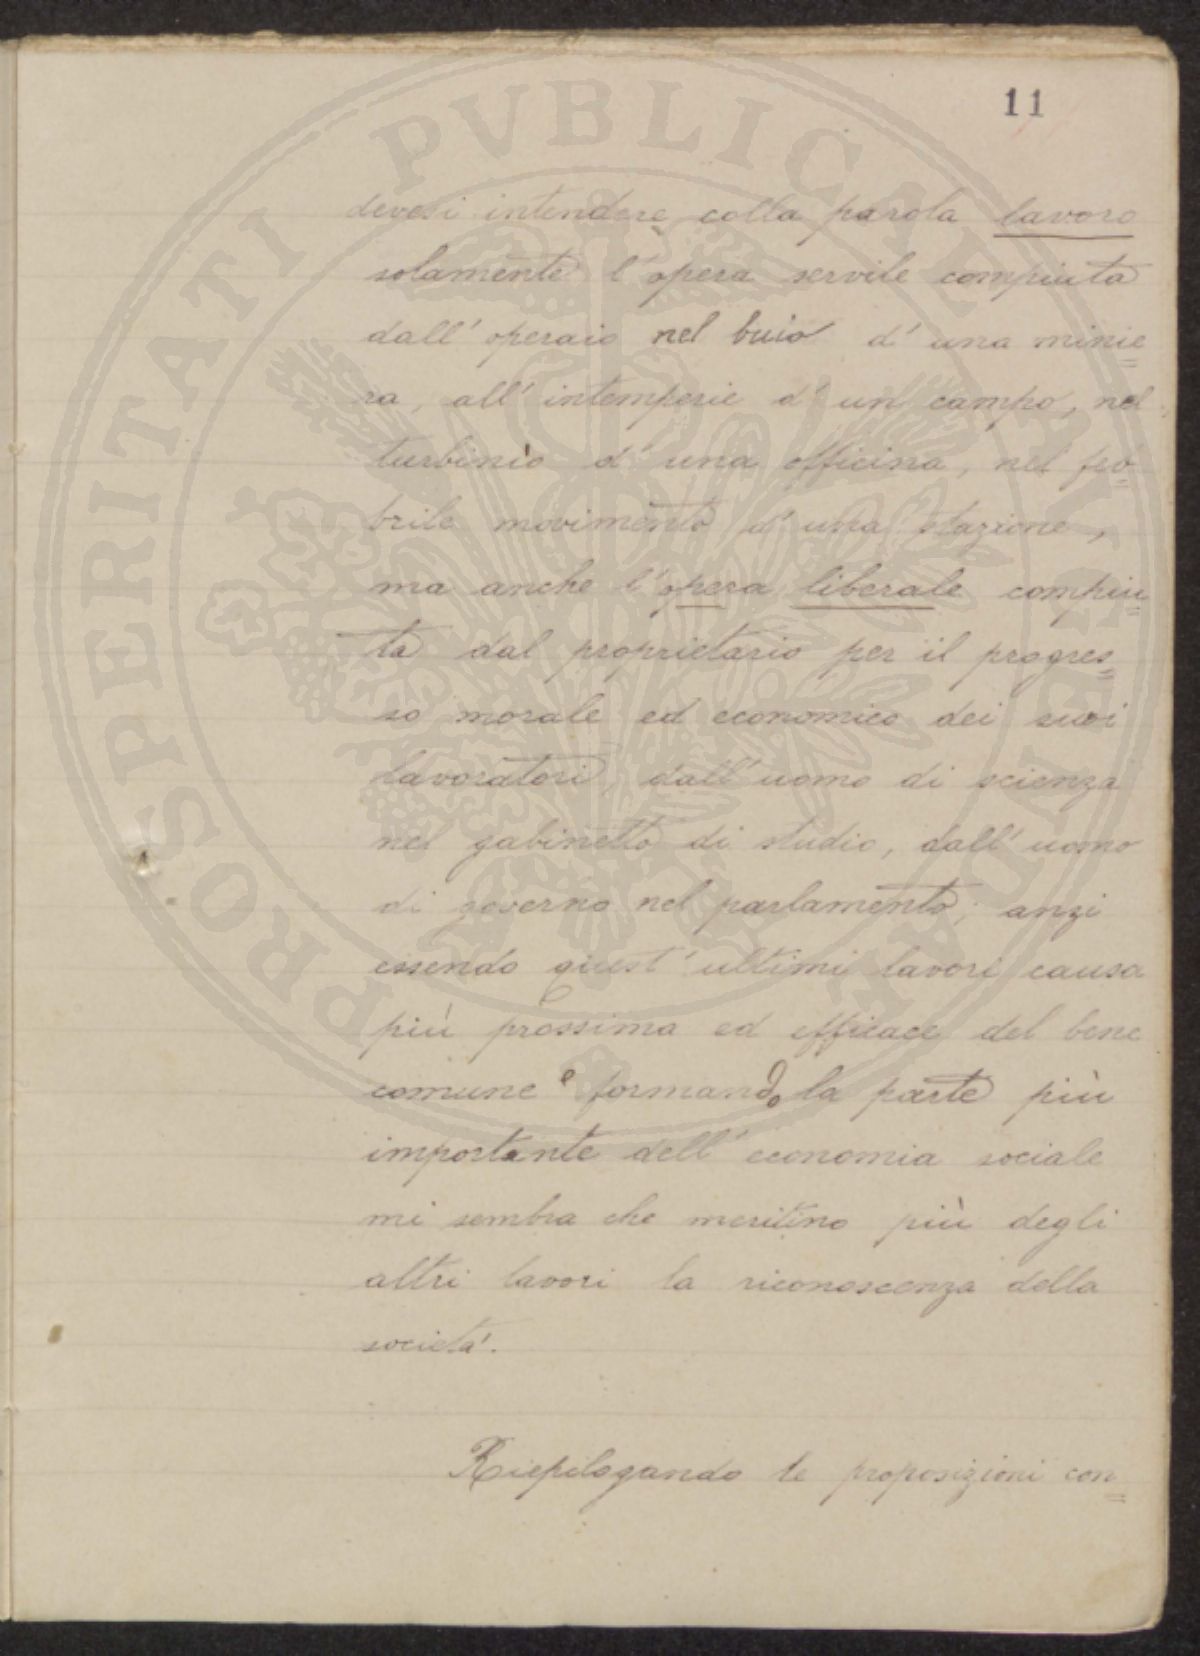 11
devesi intendere colla parola lavoro
solamente l'opera servile compiuta
dall'operaio nel buio d'una minie=
ra, all'intemperie d'un campo, nel
turbinìo d'una officina, nel feb=
brile movimento d'una stazione,
ma anche l'opera liberale compiu=
ta dal proprietario per il progres=
so morale ed economico dei suoi
lavoratori, dall'uomo di scienza
nel gabinetto di studio, dall'uomo
di governo nel parlamento; anzi
essendo quest'ultimi lavori causa
più prossima ed efficace del bene
comune e formando la parte più
importante dell'economia sociale
mi sembra che meritino più degli
altri lavori la riconoscenza della
società.
Riepilogando le proposizioni con=
PROSPERITATI PVBLICAE AVGENDAE